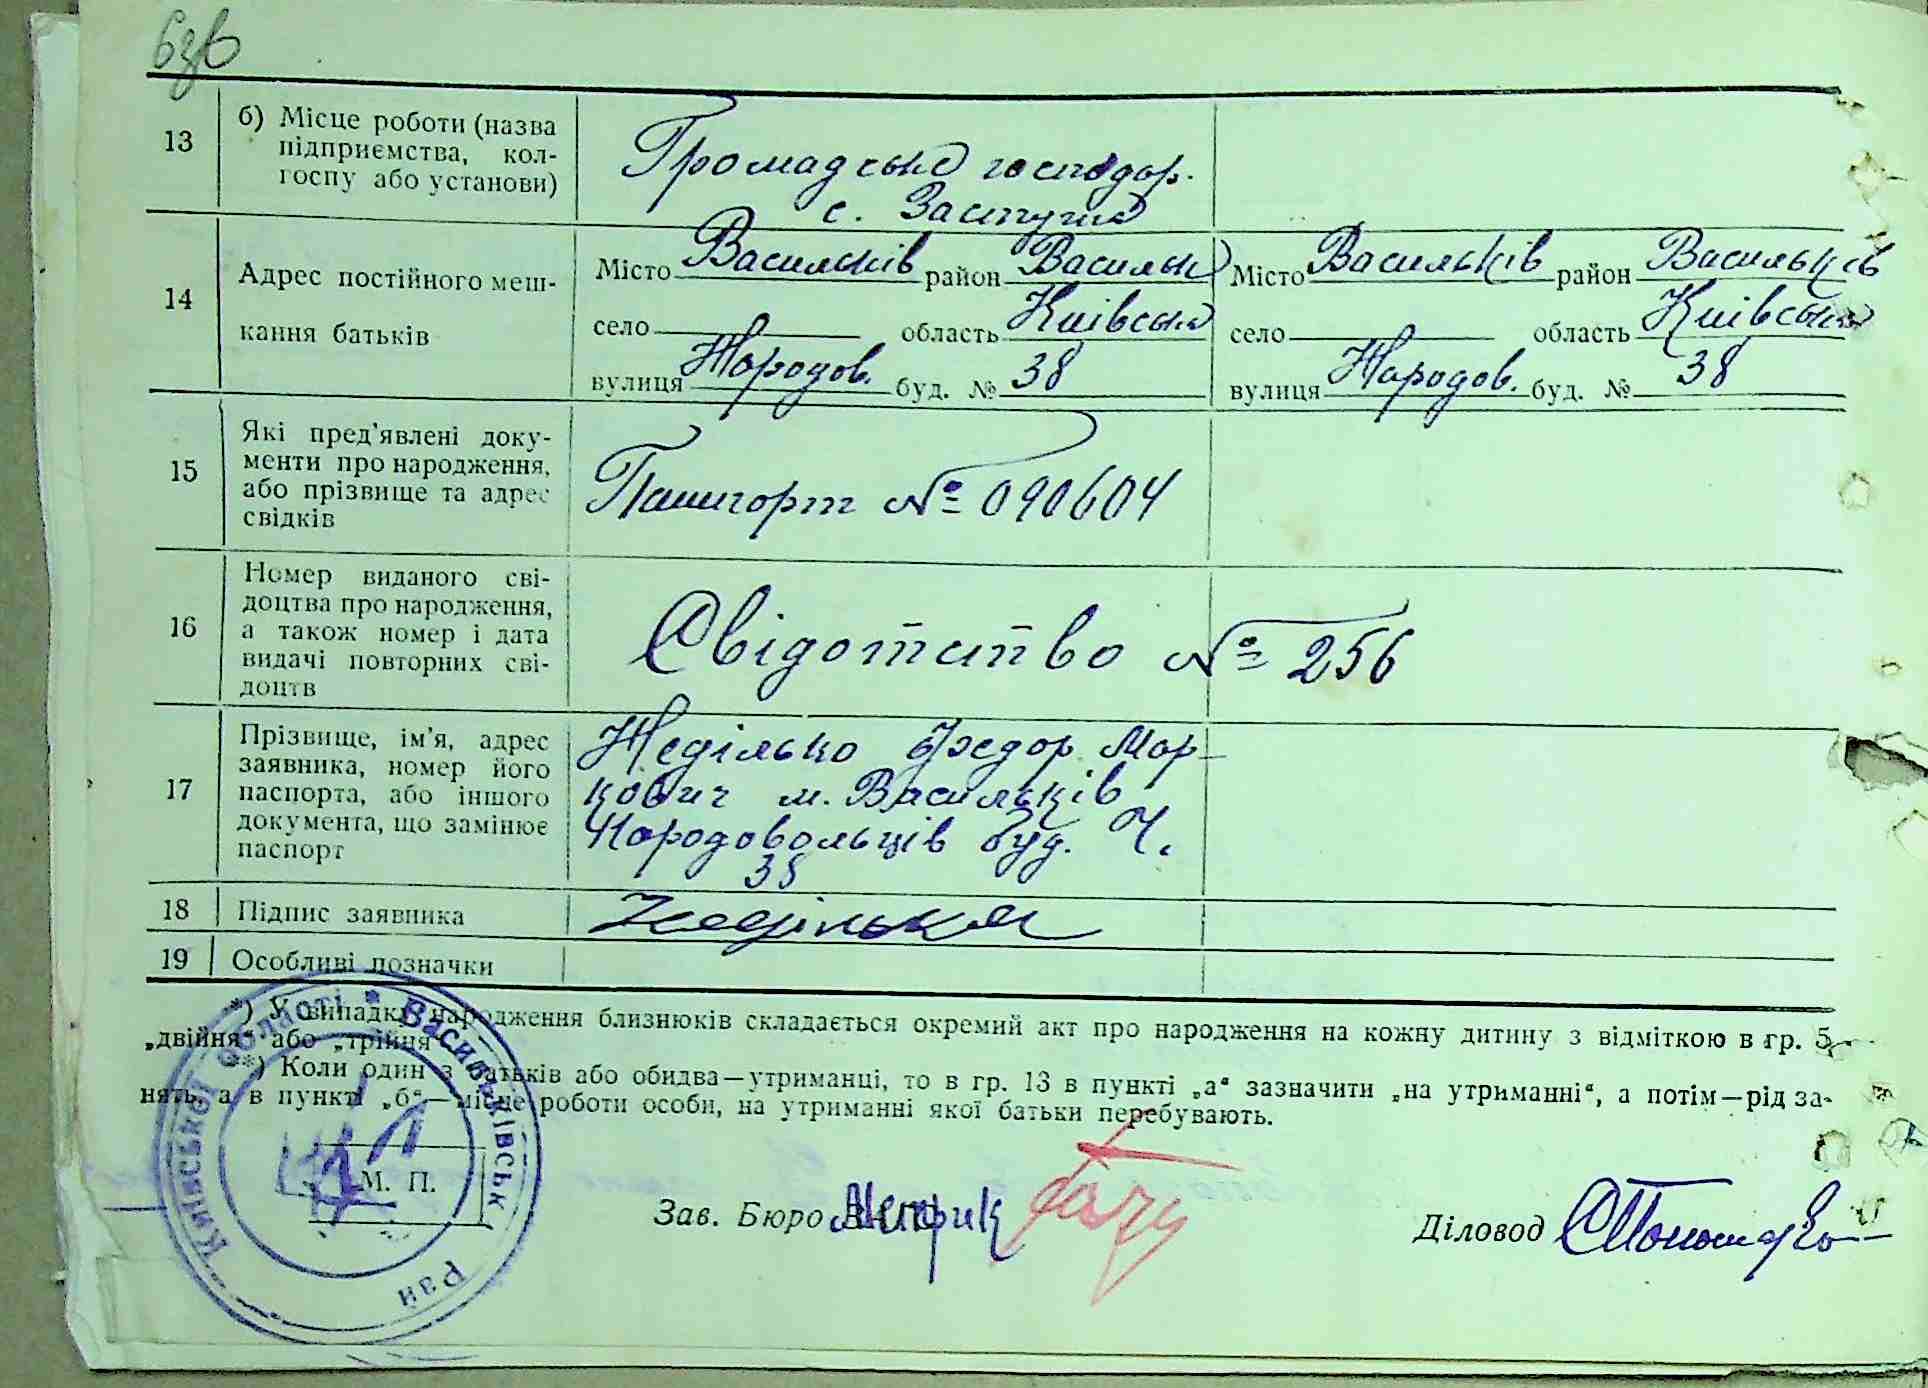 63в
13
б) Місце роботи (назва
підприємства, кол-
госпу або установи)
Громадське господор.
с. Застугна
14
Адрес постійного меш-
кання батьків
Місто Васильків район Васильк
село область Київська
вулиця Народов. буд. № 38
Місто Васильків район Васильків
село область Київська
вулиця Народов. буд. № 38
15
Які пред'явлені доку-
менти про народження,
або прізвище та адрес
свідків
Пашпорт № 090604
16
Номер виданого сві-
доцтва про народження,
а також номер і дата
видачі повторних сві-
доцтв
Свідотство № 256
17
Прізвище, ім'я, адрес
заявника, номер його
паспорта, або іншого
документа, що замінює
паспорт
Неділько Федор Мар-
кович м. Васильків
Народовольців буд. Ч.
38
18
Підпис заявника
Неділько
19
Особливі позначки
*) У випадку народження близнюків складається окремий акт про народження на кожну дитину з відміткою в гр. 5
„двійня“ або „трійня“
**) Коли один з батьків або обидва—утриманці, то в гр. 13 в пункті „а“ зазначити „на утриманні“, а потім—рід за-
нять, а в пункті „б“—місце роботи особи, на утриманні якої батьки перебувають.
М. П.
Київської області * Васильківськ Рай
Зав. Бюро
Діловод